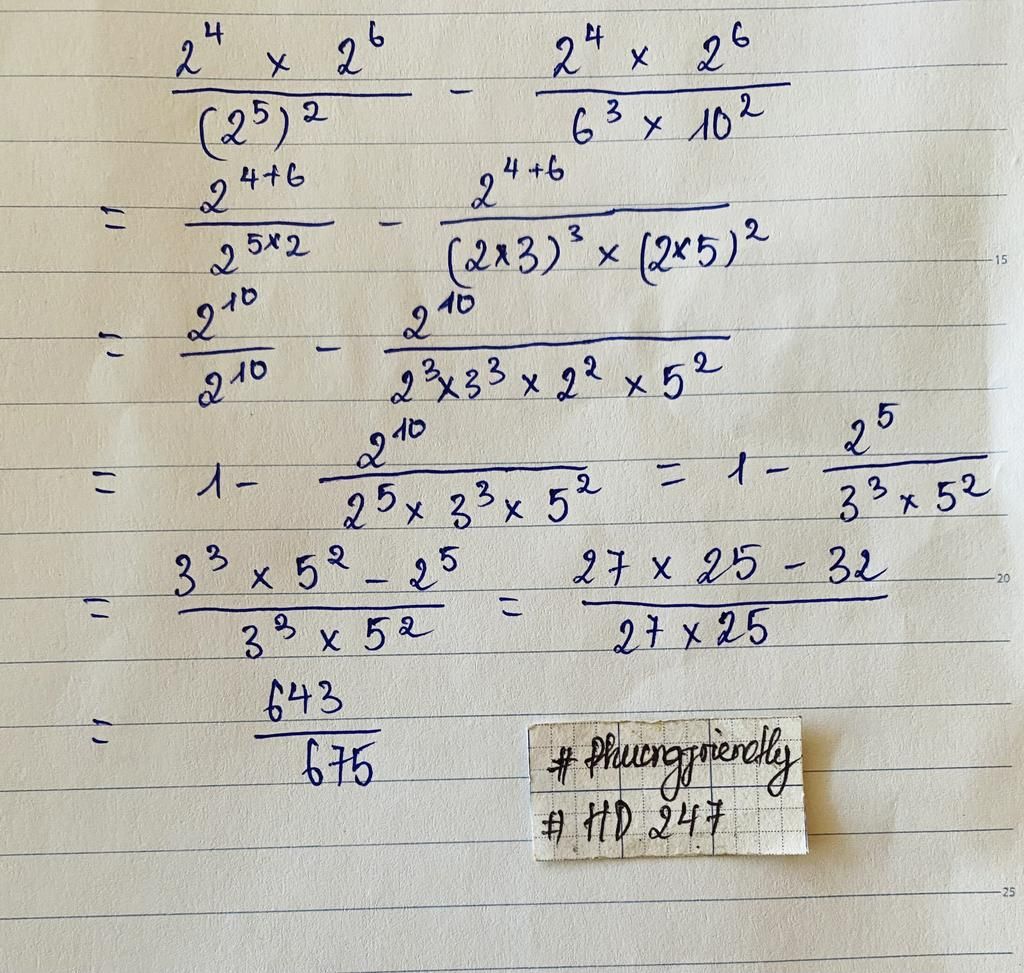 \frac{2^4 × 2^6}{(2^5)^2} - \frac{2^4 × 2^6}{6^3 × 10^2}
= \frac{2^{4+6}}{2^{5×2}} - \frac{2^{4+6}}{(2×3)^3 × (2×5)^2}
= \frac{2^{10}}{2^{10}} - \frac{2^{10}}{2^3×3^3 × 2^2 × 5^2}
= 1 - \frac{2^{10}}{2^5 × 3^3 × 5^2} = 1 - \frac{2^5}{3^3 × 5^2}
= \frac{3^3 × 5^2 - 2^5}{3^3 × 5^2} = \frac{27 × 25 - 32}{27 × 25}
= \frac{643}{675}
# Phuongfriendly
# HD 247
15
20
25